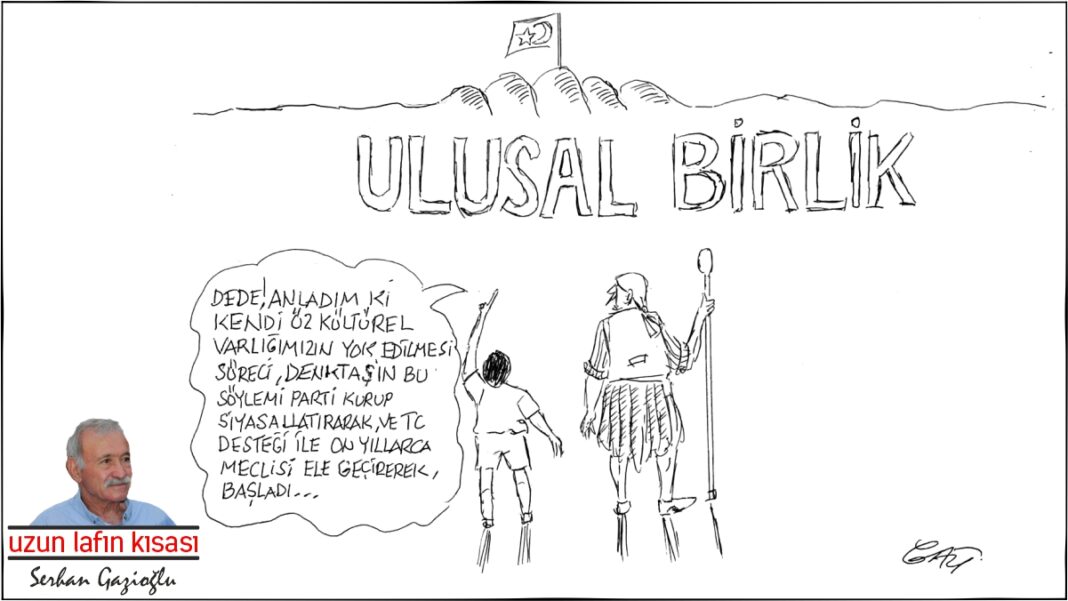 ULUSAL BİRLİK
DEDE! ANLADIM Kİ
KENDİ ÖZ KÜLTÜREL
VARLIĞIMIZIN YOK EDİLMESİ
SÜRECİ, DENKTAŞIN BU
SÖYLEMİ PARTİ KURUP
SİYASALLATIRARAK, VE TC
DESTEĞİ İLE ON YILLARCA
MECLİSİ ELE GEÇİREREK,
BAŞLADI...
uzun lafın kısası
Serhan Gazioğlu